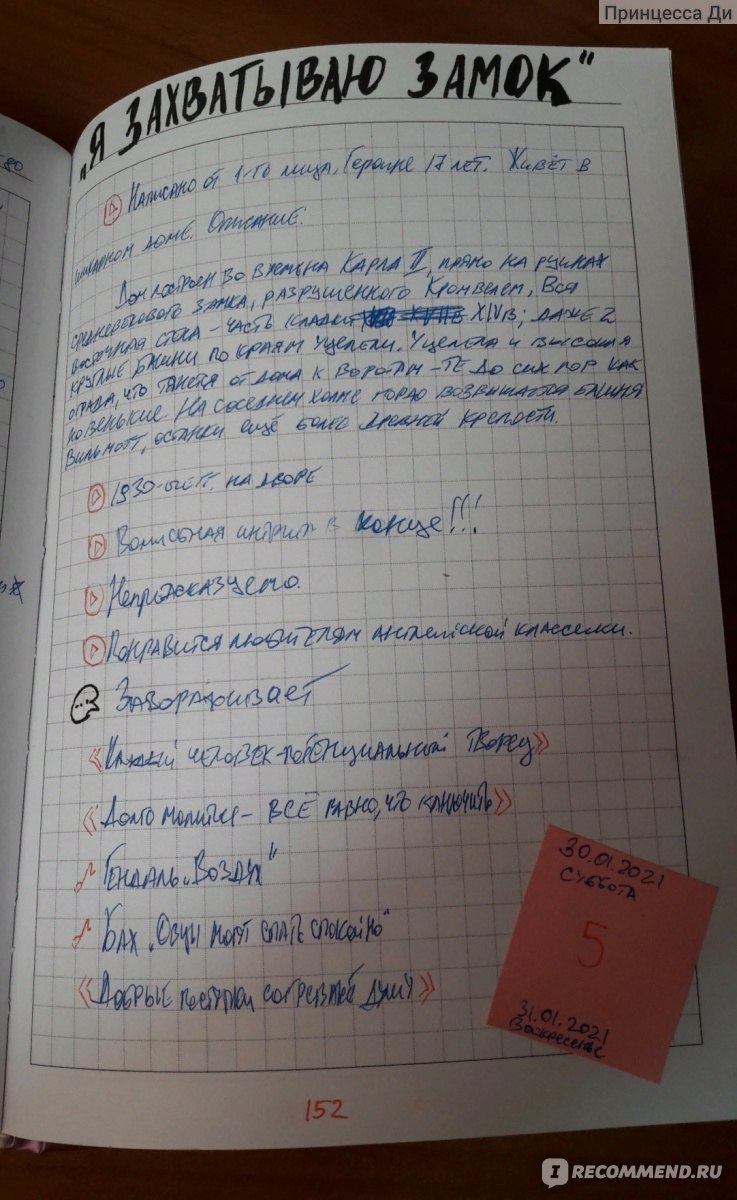 Принцесса Ди
80
„Я ЗАХВАТЫВАЮ ЗАМОК"
Написано от 1-го лица. Героине 17 лет. Живёт в
шикарном доме. Описание:
Дом построен во времена Карла II, прямо на руинах
средневекового замка, разрушенного Кромвелем. Вся
восточная стена – часть кладки XIVв; даже 2
круглые башни по краям уцелели. Уцелела и высокая
ограда, что тянется от дома к воротам – те до сих пор как
новенькие. На соседнем холме гордо возвышается башня
Вильмотт, останки ещё более древней крепости.
1930-ые гг. на дворе
Волшебная интрига в конце!!!
Непредсказуемо.
Понравится любителям английской классики.
Завораживает
«Каждый человек-потенциальный творец»
«Долго молиться – ВСЁ равно, что клянчить»
Гендаль „Воздух"
Бах „Овцы могут спать спокойно"
«Добрые поступки согревают душу»
30.01.2021
СУББОТА
5
31.01.2021
Воскресенье
152
IRECOMMEND.RU